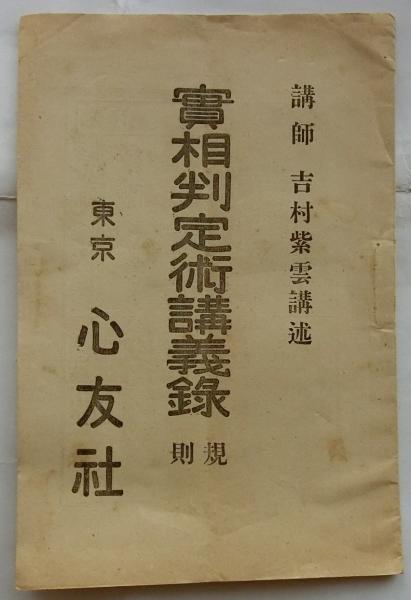 講師 吉村紫雲講述
實相判定術講義錄
規則
東京 心友社